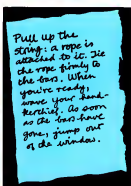 Pull up the
string: a rope is
attached to it. Tie
the rope firmly to
the bars. When
you're ready,
wave your hand-
kerchief. As soon
as the bars have
gone, jump out
of de window.